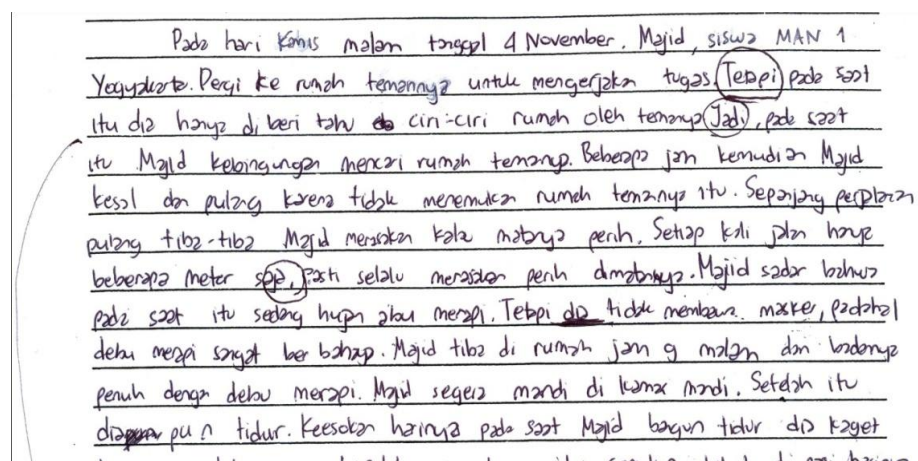 Pada hari Kamis malam tanggal 4 November. Majid, siswa MAN 1
Yogyakarta. Pergi ke rumah temannya untuk mengerjakan tugas. Tetapi pada saat
itu dia hanya di beri tahu ciri-ciri rumah oleh temanya Jadi, pada saat
itu Majid kebingungan mencari rumah temanya. Beberapa jam kemudian Majid
kesal dan pulang karena tidak menemukan rumah temanya itu. Sepanjang perjalanan
pulang tiba-tiba Majid merasakan kalau matanya perih. Setiap kali jalan hanya
beberapa meter saja, pasti selalu merasakan perih dimatanya. Majid sadar bahwa
pada saat itu sedang hujan abu merapi. Tetapi dia tidak membawa masker, padahal
debu merapi sangat ber bahaya. Majid tiba di rumah jam 9 malam dan badannya
penuh dengan debu merapi. Majid segera mandi di kamar mandi. Setelah itu
dia pun tidur. Keesokan harinya pada saat Majid bagun tidur dia kaget